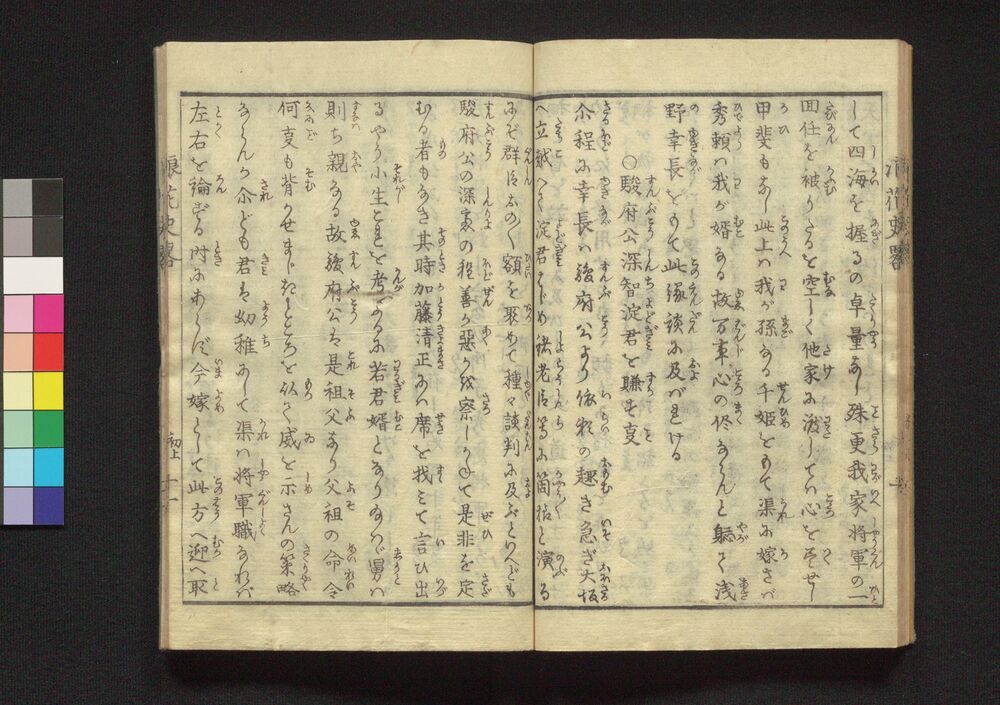 して四海を握るの卓量あり殊更我家将軍の一
面任を被りたるを空しく他家に渡しては心をも安じ
甲斐もなし此上は我が孫なる千姫をもて渠に嫁さば
秀頼は我が婿なる故万事心の侭ならんと躯て浅
野幸長をもて此縁談に及ばれける
○駿府公深智淀君を賺す事
尒程に幸長は駿府公より依頼の趣き急ぎ大坂
へ立越へて淀君はじめ諸老臣等に箇様と演る
にぞ群臣おの〳〵額を聚めて種々談判に及ぶといへども
駿府公の深慮の程善か悪か察しかねて是非を定
むる者もなき其時加藤清正には席を找みて言ひ出
るやう小生これを考ふるに若君婿となり給はゞ舅は
則ち親なる故駿府公は是祖父なり父祖の命令
何事も背かせまじきところを以て威を示さんの策略
ならんか尒ども君は幼稚にして渠は将軍職なれば
左右を論ずる時にあらず今嫁として此方へ迎へ取
浪花史畧
初上